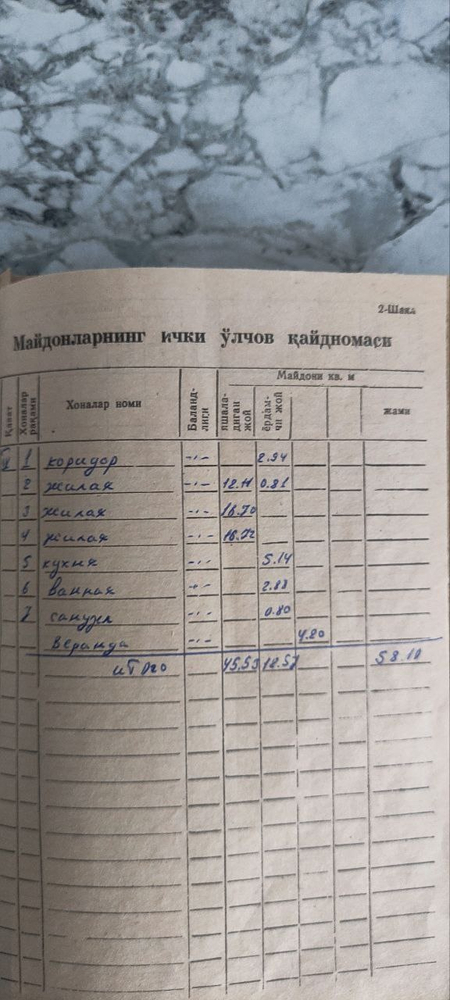 2-Шакл
Майдонларнинг ички ўлчов қайдномаси
Қават Хоналар рақами Хоналар номи Баландлиги Майдони кв. м
яшаладиган жой ёрдамчи жой жами
1 коридор -〃- 2.94
2 жилая -〃- 12.11 0.81
3 жилая -〃- 16.70
4 жилая -〃- 16.72
5 кухня -〃- 5.14
6 ванная -〃- 2.88
7 санузл -〃- 0.80
веранда -〃- 4.80
итого 45.53 12.57 58.10